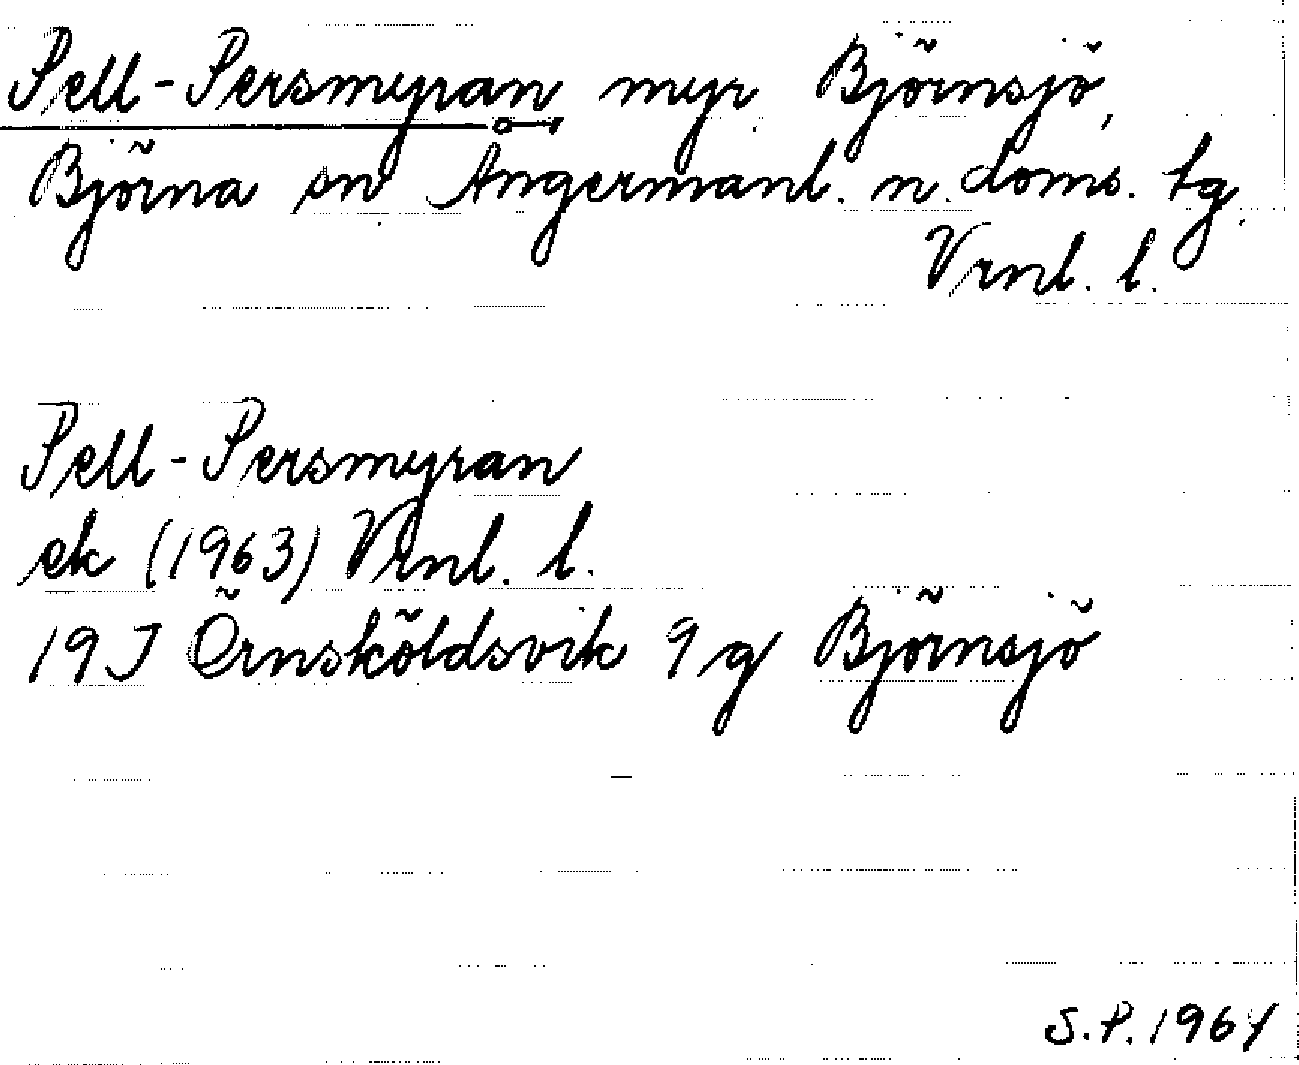 Pell-Persmyran myr Björnsjö,
Björna sn Ångermanl. n. doms. tg.
Vrnl. l.
Pell-Persmyran
ek (1963) Vrnl. l.
19J Örnsköldsvik 9g Björnsjö
S.P. 1964